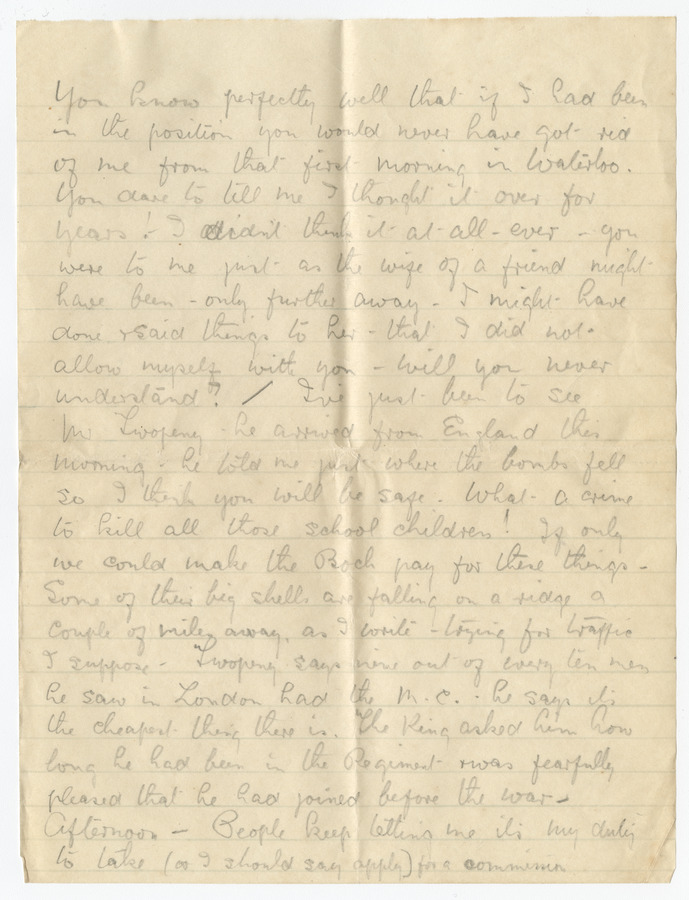 You know perfectly well that if I had been
in the position you would never have got rid
of me from that first morning in Waterloo.
You dare to tell me I thought it over for
years! - I didn't think it - at - all - ever - you
were to me just as the wife of a friend might
have been - only further away. I might have
done & said things to her - that I did not
allow myself with you - will you never
understand? / I've just been to see
Mr Twopeny - he arrived from England this
morning - he told me just where the bombs fell
so I think you will be safe. What a crime
to kill all those school children! If only
we could make the Boch pay for these things -
Some of their big shells are falling on a ridge a
couple of miles away, as I write - trying for traffic
I suppose - Twopeny says nine out of every ten men
he saw in London had the M.C. - he says it's
the cheapest thing there is. The King asked him how
long he had been in the Regiment & was fearfully
pleased that he had joined before the war -
Afternoon - People keep telling me it's my duty
to take (or I should say apply) for a commission